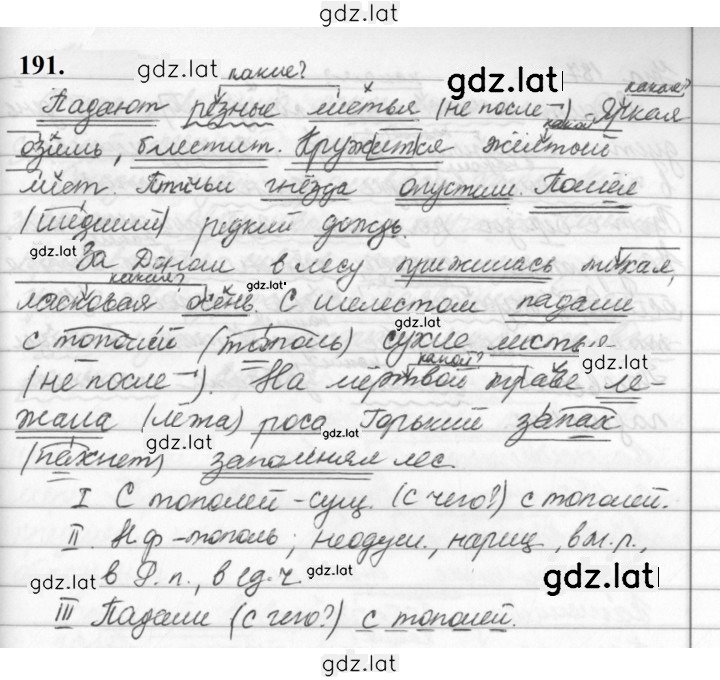 gdz.lat
191. gdz.lat какие? gdz.lat какая?
Падают резные листья (не после ¬). Яркая
какой?
озимь, блестит. Кружится жёлтый
лист. Птичьи гнёзда опустели. Пошёл
(шедший) редкий дождь.
gdz.lat За Доном в лесу прижилась тихая,
какая? gdz.lat
ласковая осень. С шелестом падали
gdz.lat
с тополей (тополь) сухие листья
какой? gdz.lat
(не после ¬). На мёртвой траве ле-
жала (лёжа) роса. Горький запах
gdz.lat gdz.lat
(пахнет) заполнял лес.
I С тополей - сущ. (с чего?) с тополей.
II. Н.ф - тополь; неодуш., нариц, в м.р.,
gdz.lat в Р.п., в ед.ч. gdz.lat gdz.lat
III Падали (с чего?) с тополей.
gdz.lat